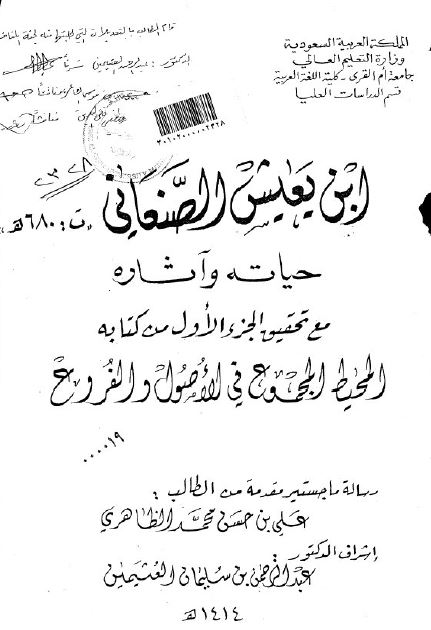 المملكة العربية السعودية
وزارة التعليم العالي
جامعة أم القرى - كلية اللغة العربية
قسم الدراسات العليا
قام الطالب بالتعديلات التي طلبتها منه لجنة المناقشة
٣٠١٠٢٠٠٠٠٠٢٣٢٨
ابن يعيش الصنعاني «ت: ٦٨٠هـ»
حياته وآثاره
مع تحقيق الجزء الأول من كتابه
المحيط المجموع في الأصول والفروع
٠٠٠٠١٩
رسالة ماجستير مقدمة من الطالب:
علي بن حسن محمد الظاهري
إشراف الدكتور:
عبد الرحمن بن سليمان العثيمين
١٤١٤هـ